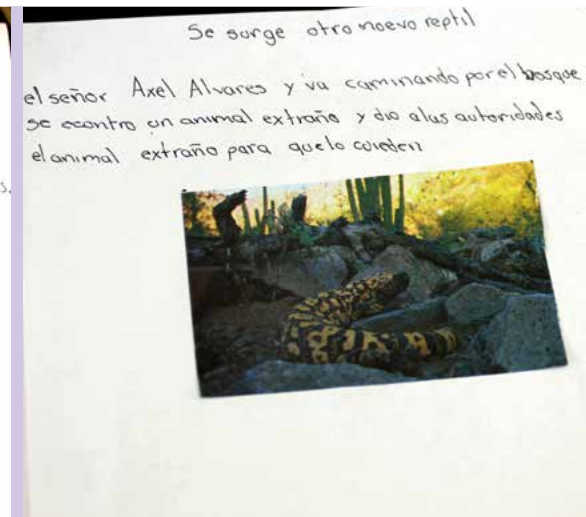 Se surge otro nuevo reptil
el señor Axel Alvares y va caminando por el bosque
se econtro un animal extraño y dio alus autoridades
el animal extraño para que lo cuieden
s.